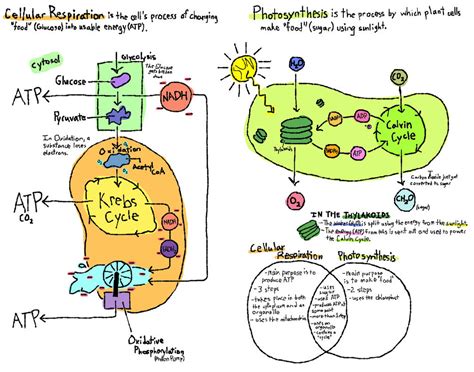 Cellular Respiration is the cell's process of changing
"food" (Glucose) into usable energy (ATP).
cytosol
Glycolysis
ATP
Glucose
NADH
Pyruvate
In Oxidation, a
substance loses
electrons.
Oxidation
Acetyl CoA
ATP
CO2
Krebs
Cycle
NADH
ATP
Oxidative
Phosphorylation
Photosynthesis is the process by which plant cells
make "food" (sugar) using sunlight.
H2O
CO2
Thylakoids
ADP
ATP
Calvin
Cycle
O2
CH2O
(sugar)
Carbon dioxide just got
converted to sugar
IN THE THYLAKOIDS
is split using the energy from the sunlight.
The energy from this is sent out and used to power
the Calvin Cycle.
Cellular
Respiration
Photosynthesis
- Main purpose is to
produce ATP
- 3 steps
- takes place in both
the cytoplasm and an
organelle
- uses the mitochondria
- uses
- used ATP
- produces ATP @
some point
- more than 1 step
- uses an
organelle
- contains a
"cycle"
- main purpose
is to make food
- 2 steps
- uses the chloroplast